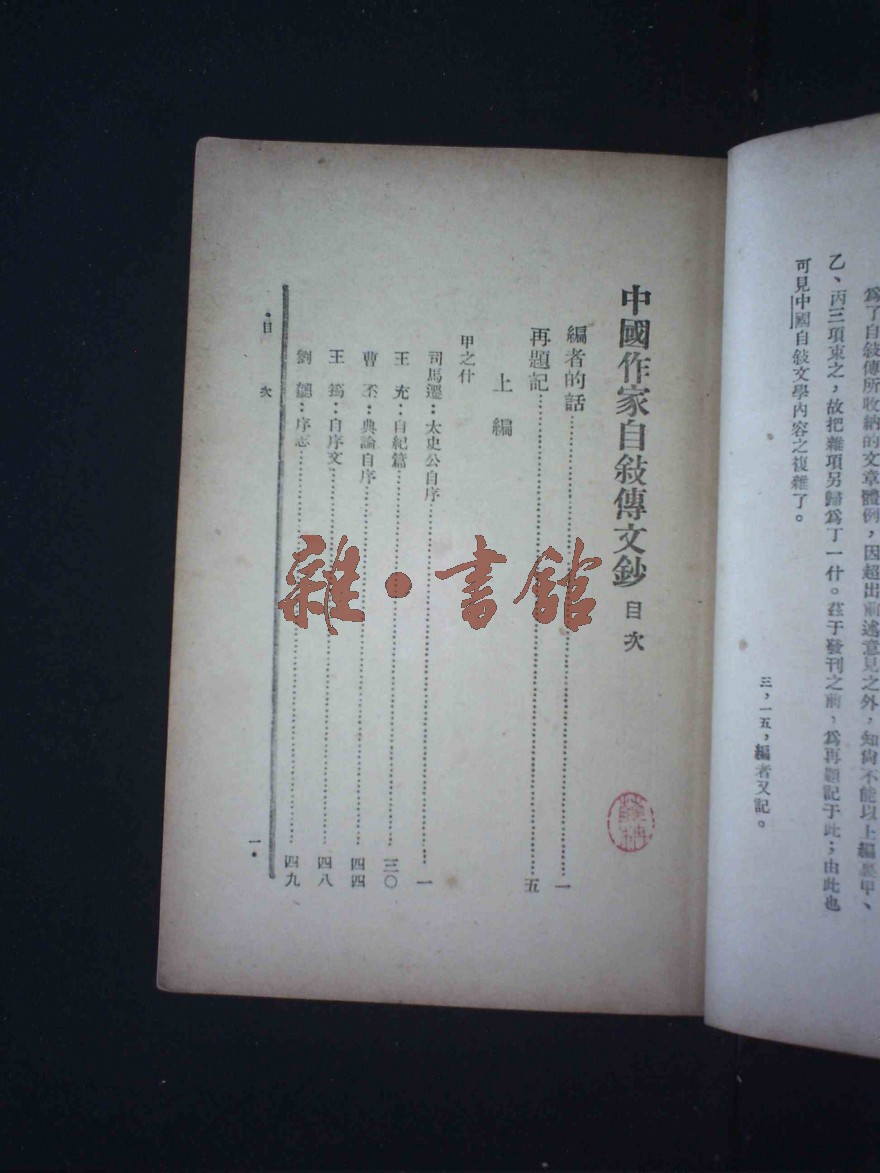 爲了自敍傳所收納的文章體例，因超出前述意見之外，知尙不能以上編甲、
乙、丙三項束之，故把雜項另歸爲丁一什。茲于發刊之前，爲再題記于此；由此也
可見中國自敍文學內容之複雜了。
三，一五，編者又記。
中國作家自敍傳文鈔 目次
編者的話…………一
再題記…………五
上編
甲之什
司馬遷：太史公自序…………一
王 充：自紀篇…………三〇
曹 丕：典論自序…………四四
王 筠：自序文…………四八
劉 勰：序志…………四九
·目 次
一·
雜·書館